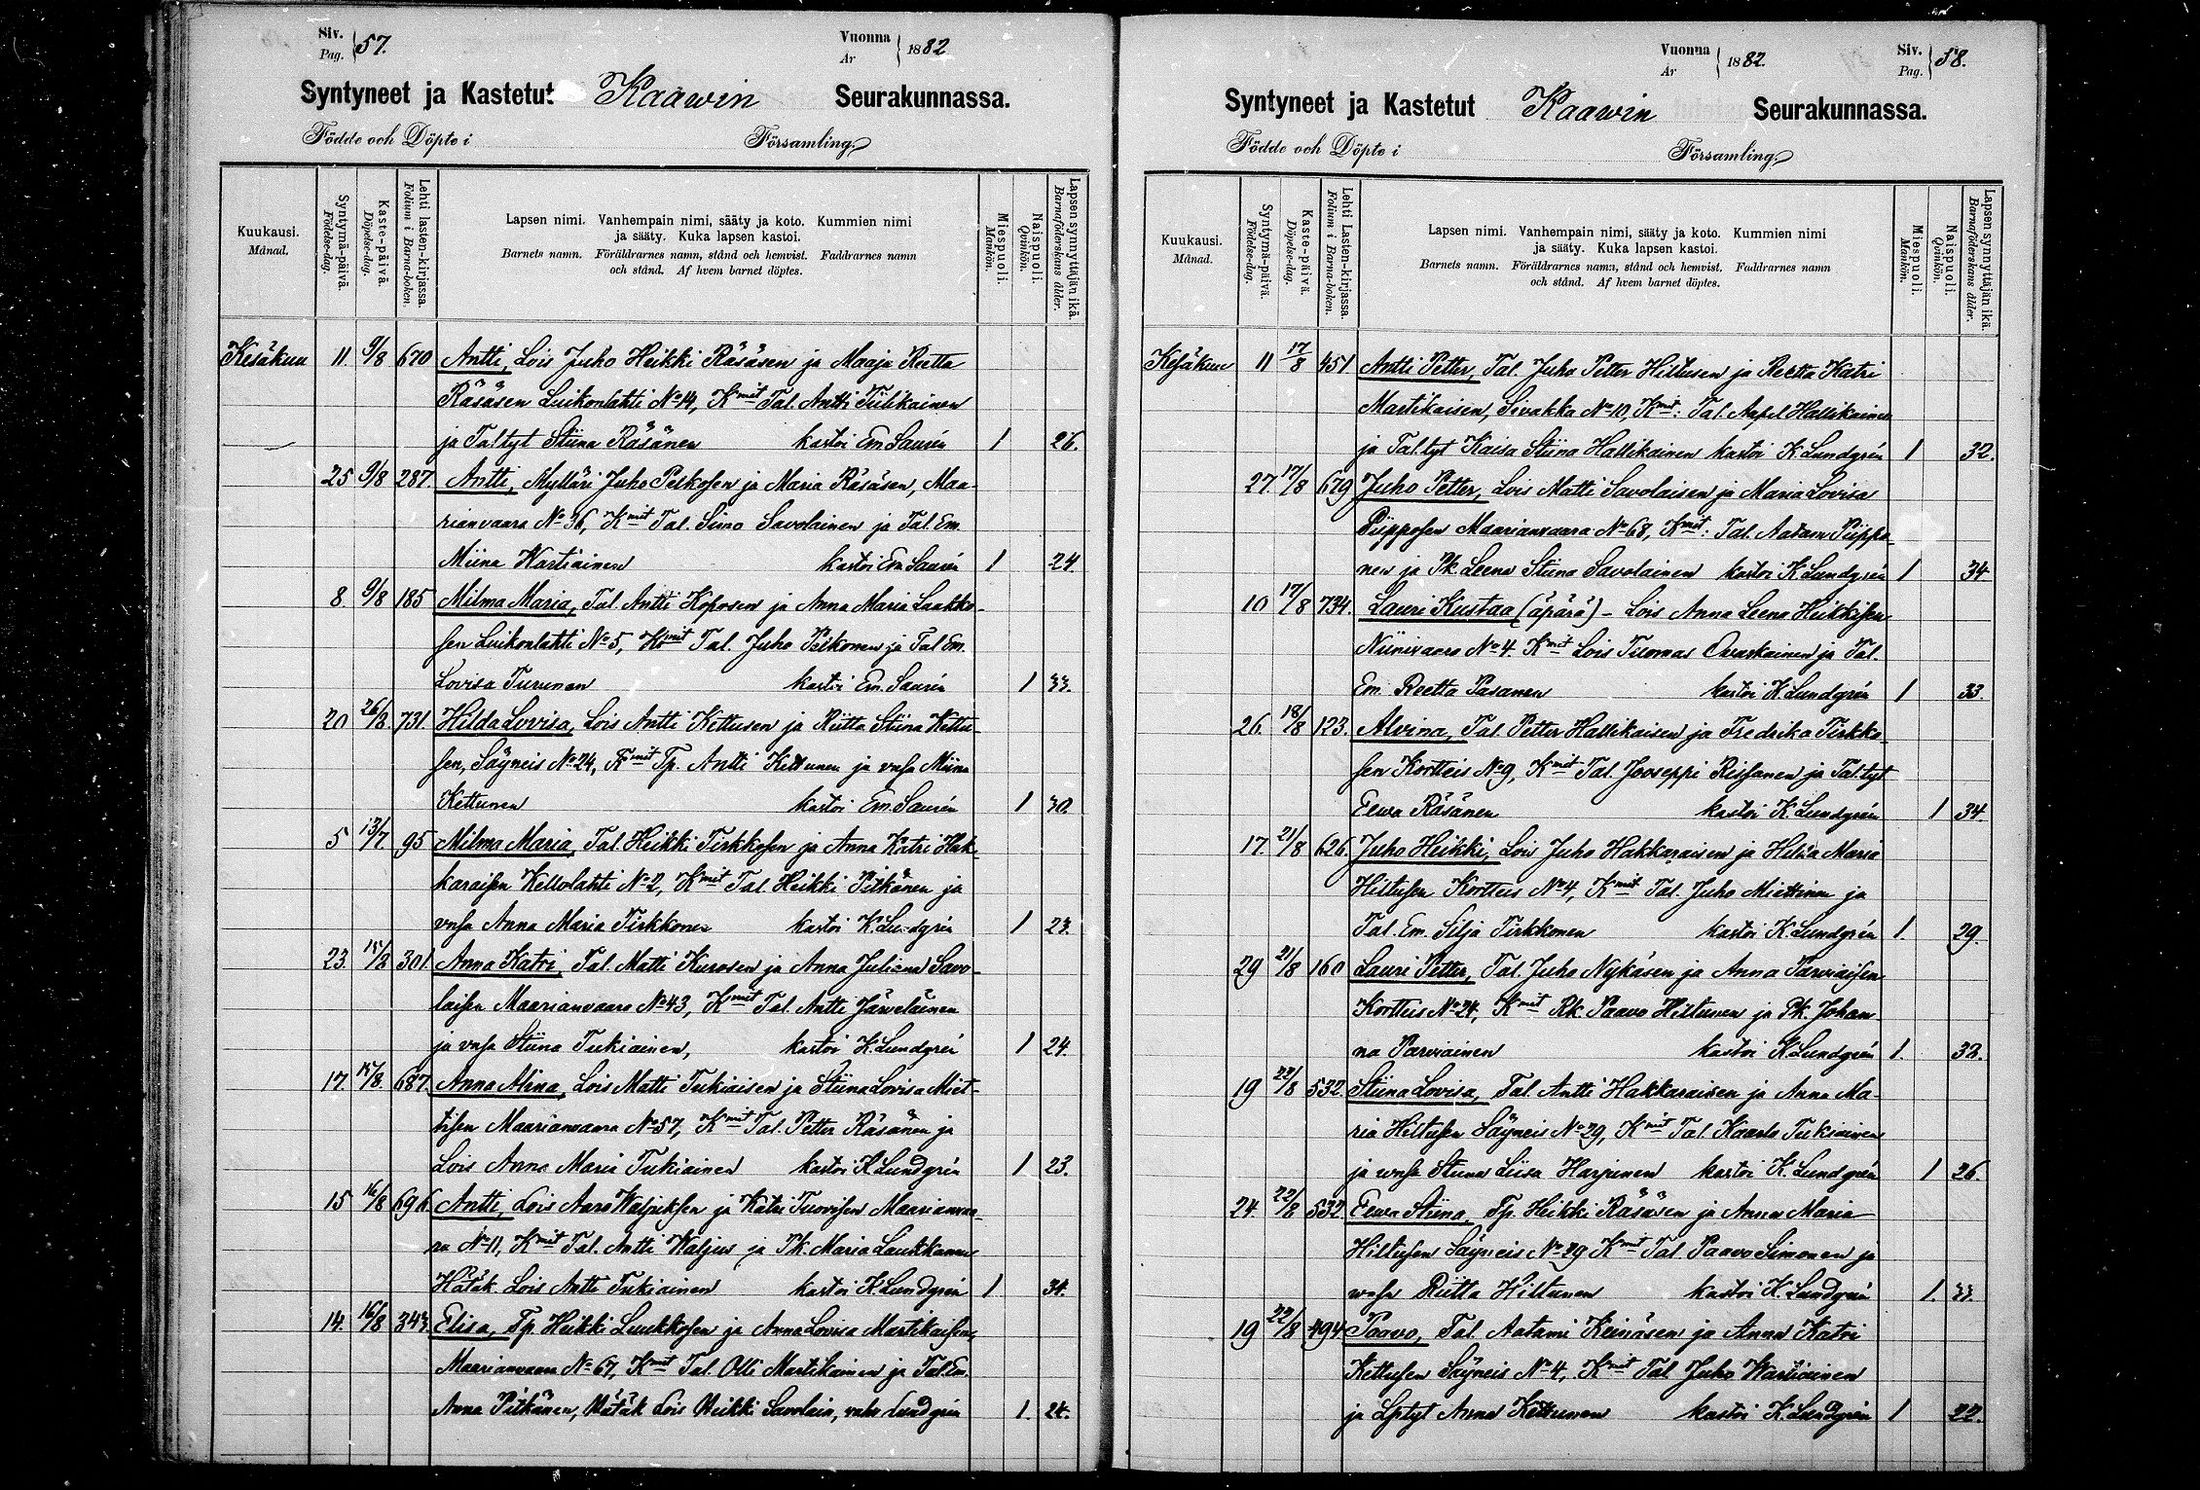 Siv.
Pag. 57.
Vuonna
År 1882
Syntyneet ja Kastetut Kaawin Seurakunnassa.
Födde och Döpte i Församling
Kuukausi.
Månad.
Syntymä-päivä.
Födelse-dag.
Kaste-päivä.
Döpelse-dag.
Lehti lasten-kirjassa.
Folium i Barna-boken.
Lapsen nimi. Vanhempain nimi, sääty ja koto. Kummien nimi
ja sääty. Kuka lapsen kastoi.
Barnets namn. Föräldrarnes namn, stånd och hemvist. Faddrarnes namn
och stånd. Af hvem barnet döptes.
Miespuoli.
Mankön.
Naispuoli.
Qvinkön.
Lapsen synnyttäjän ikä.
Barnaföderskans ålder.
Kesäkuu 11. 9/8 670 Antti, Lois Juho Heikki Räsäsen ja Maaja Reetta
Räsäsen Luikonlahti No 14, Kmit Tal. Antti Tulikainen
ja Tal.tyt Stiina Räsänen kastoi Em. Saurén 1 26.
25 9/8 287 Antti, Mylläri Juho Pelkosen ja Maria Räsäsen, Maa-
rianvaara No 36, Kmit Tal. Simo Savolainen ja Tal. Em.
Miina Wartiainen kastoi Em. Saurén 1 24
8. 9/8 185 Milma Maria, Tal. Antti Koposen ja Anna Maria Laakko-
sen Luikonlahti No 5, Kmit Tal. Juho Pelkonen ja Tal Em.
Lovisa Turunen kastoi Em. Saurén 1 33.
20 26/8. 731. Hilda Lovisa, Lois Antti Kettusen ja Riitta Stiina Kettu-
sen, Säyneis No 24, Kmit Tp. Antti Kettunen ja vmsa Miina
Kettunen kastoi Em. Saurén 1 30.
5 13/7. 95 Milma Maria, Tal. Heikki Tirkkosen ja Anna Katri Hak-
karaisen Kellolahti No 2, Kmit Tal. Heikki Pitkänen ja
vmsa Anna Maria Tirkkonen kastoi K. Lundgrén 1 23.
23. 15/8 301 Anna Katri, Tal. Matti Kurosen ja Anna Juliana Savo-
laisen Maarianvaara No 43, Kmit Tal. Antti Järveläinen
ja vmsa Stiina Tukiainen, kastoi K. Lundgrén 1 24.
17. 15/8. 687 Anna Alina, Lois Matti Tukiaisen ja Stiina Lovisa Miet-
tisen Maarianvaara No 57, Kmit Tal. Petter Räsänen ja
Lois Anna Maria Tukiainen kastoi K. Lundgrén 1 23.
15 16/8 696. Antti, Lois Aaro Waljuksen ja Katri Tuovisen Maarianvaa-
ra No 11, Kmit Tal. Antti Waljus ja Pk. Maria Laukkanen
Hätäk. Lois Antti Tukiainen kastoi K. Lundgrén 1 34.
14. 16/8 343. Elisa, Tp. Heikki Luukkosen ja Anna Lovisa Martikaisen,
Maarianvaara No 67, Kmit Tal. Olli Martikainen ja Tal. Em.
Anna Pitkänen, Hätäk Lois Heikki Savolain, vahv. Lundgrén 1. 24.
Vuonna
År 1882.
Siv.
Pag. 58.
Syntyneet ja Kastetut Kaawin Seurakunnassa.
Födde och Döpte i Församling
Kuukausi.
Månad.
Syntymä-päivä.
Födelse-dag.
Kaste-päivä.
Döpelse-dag.
Lehti Lasten-kirjassa.
Folium i Barna-boken.
Lapsen nimi. Vanhempain nimi, sääty ja koto. Kummien nimi
ja sääty. Kuka lapsen kastoi.
Barnets namn. Föräldrarnes namn, stånd och hemvist. Faddrarnes namn
och stånd. Af hvem barnet döptes.
Miespuoli.
Mankön.
Naispuoli.
Qvinkön.
Lapsen synnyttäjän ikä.
Barnaföderskans ålder.
Kesäkuu 11 17/8 451 Antti Petter, Tal. Juho Petter Hiltusen ja Reetta Katri
Martikaisen, Sivakka No 10, Kmit: Tal. Aapel Hallikainen
ja Tal.tyt Kaisa Stiina Hallikainen kastoi K. Lundgrén 1 32.
27. 17/8 679 Juho Petter, Lois Matti Savolaisen ja Maria Lovisa
Piipposen Maarianvaara No 68, Kmit: Tal. Aatam Piippo-
nen ja Pk. Leena Stiina Savolainen kastoi K. Lundgrén 1 34
10 17/8 734. Lauri Kustaa (äpärä) - Lois Anna Leena Heikkisen
Niinivaara No 4. Kmit Lois Tuomas Ovaskainen ja Tal.
Em. Reetta Pasanen kastoi K. Lundgrén 1 33.
26. 18/8 123. Alvina, Tal. Petter Hallikaisen ja Fredrika Tirkko-
sen Kortteis No 9, Kmit Tal. Jooseppi Rissanen ja Tal.tyt
Eewa Räsänen kastoi K. Lundgrén 1 34.
17. 21/8 626. Juho Heikki, Lois Juho Hakkaraisen ja Hilda Maria
Hiltusen Kortteis No 4, Kmit Tal. Juho Miettinen ja
Tal. Em. Silja Tirkkonen kastoi K. Lundgrén 1. 29.
29 21/8 160 Lauri Petter, Tal. Juho Nykäsen ja Anna Parviaisen
Kortteis No 24, Kmit Rk. Paavo Hiltunen ja Pk. Johan-
na Parviainen kastoi K. Lundgrén 1. 38.
19 22/8 532. Stiina Lovisa, Tal. Antti Hakkaraisen ja Anna Ma-
ria Hiltusen Säyneis No 29, Kmit Tal. Kaarlo Tukiainen
ja vmsa Stiina Liisa Harjunen kastoi K. Lundgrén 1 26.
24. 22/8 532. Eewa Stiina, Tp. Heikki Räsäsen ja Anna Maria
Hiltusen Säyneis No 29 Kmit Tal. Paavo Simonen ja
vmsa Riitta Hiltunen kastoi K. Lundgrén 1. 33.
19 22/8 494 Paavo, Tal. Aatami Keinäsen ja Anna Katri
Kettusen Säyneis No 4, Kmit Tal Juho Wartiainen
ja Lptyt Anna Kettunen kastoi K. Lundgrén 1 22.